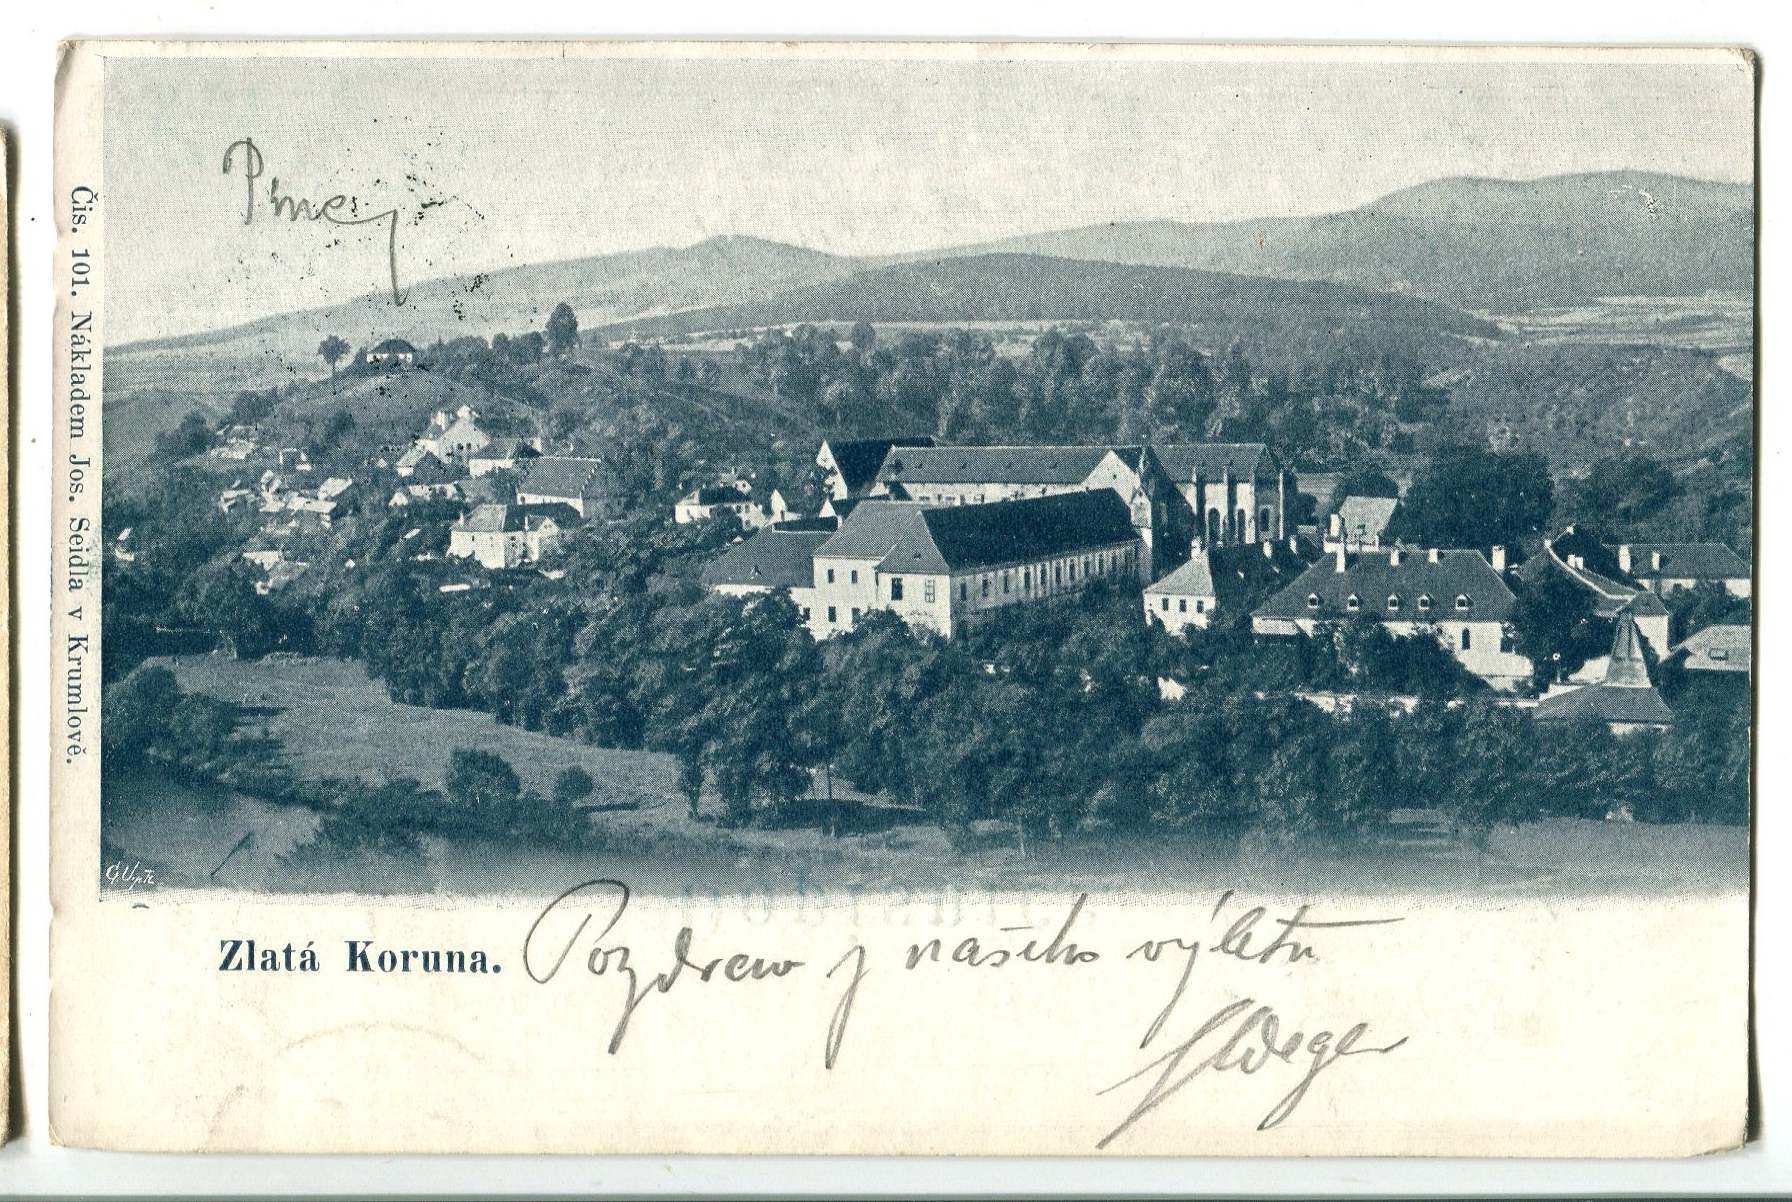 Čís. 101. Nákladem Jos. Seidla v Krumlově.
Zlatá Koruna.
Pozdrav z našeho výletu